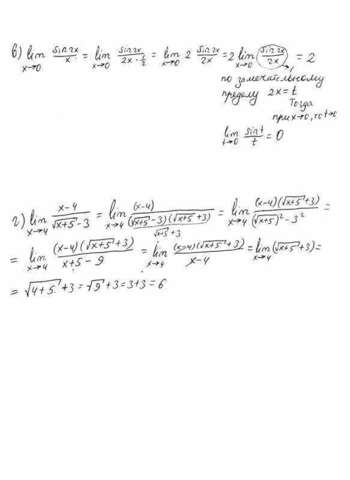 в) lim x→0 sin2x/x = lim x→0 sin2x/(2x·1/2) = lim x→0 2 sin2x/2x = 2 lim x→0 (sin2x/2x) = 2
по замечательному
пределу 2x=t
Тогда
при x→0, то t→0
lim t→0 sint/t = 0
г) lim x→4 (x-4)/(√(x+5)-3) = lim x→4 (x-4)/((√(x+5)-3)(√(x+5)+3)/(√(x+5)+3)) = lim x→4 (x-4)(√(x+5)+3)/((√(x+5))²-3²) =
= lim x→4 (x-4)(√(x+5)+3)/(x+5-9) = lim x→4 (x-4)(√(x+5)+3)/(x-4) = lim x→4 (√(x+5)+3) =
= √(4+5)+3 = √9+3 = 3+3 = 6